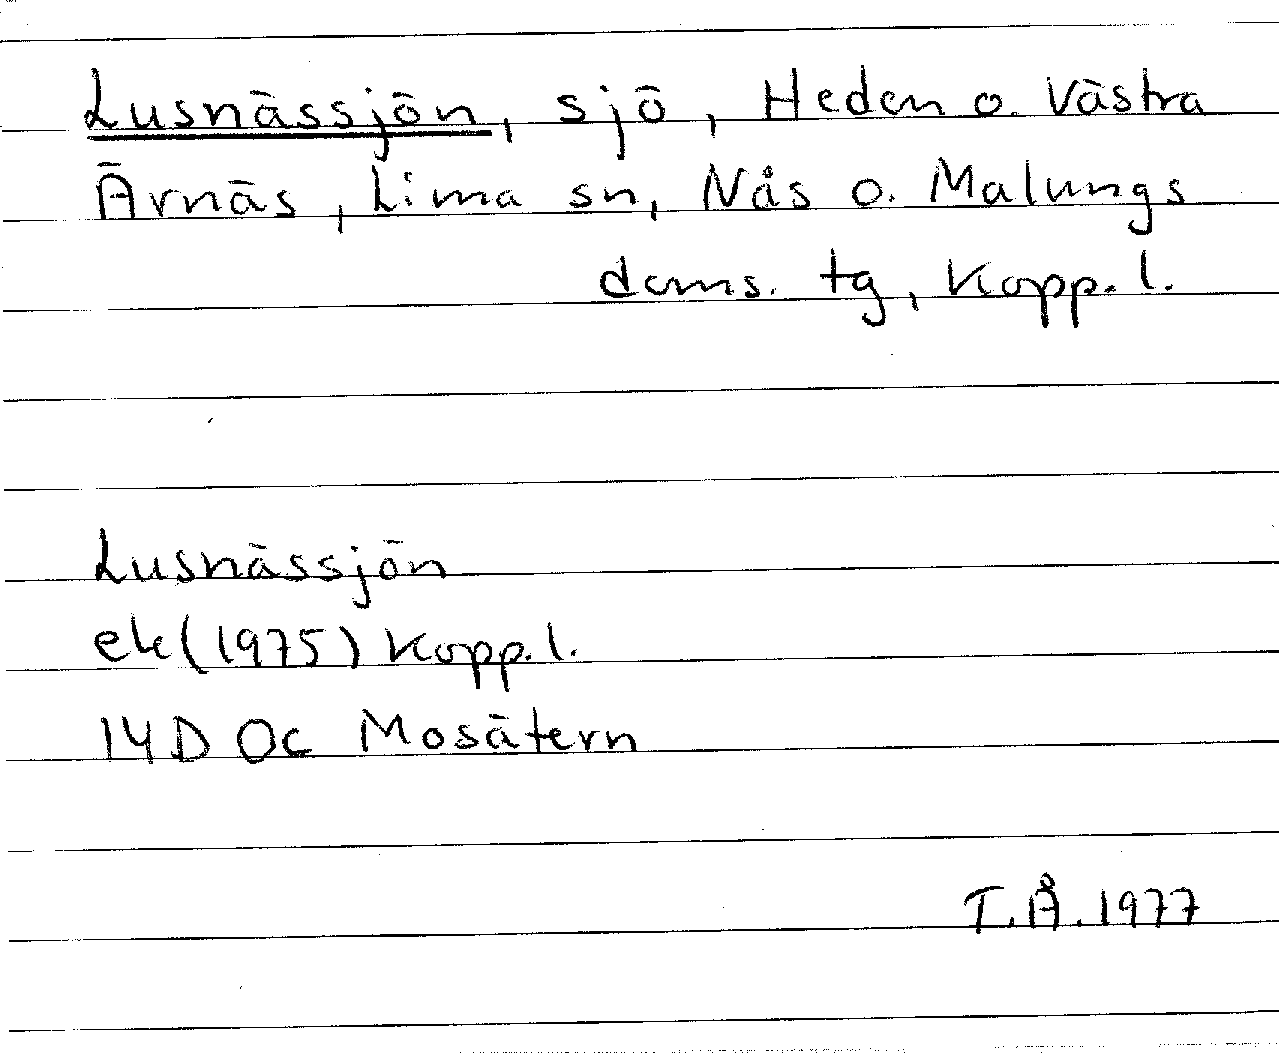 Lusnässjön, sjö, Heden o. Västra
Ärnäs, Lima sn, Nås o. Malungs
doms. tg, Kopp. l.
Lusnässjön
ek (1975) Kopp. l.
14D 0c Mosätern
T.Å. 1977